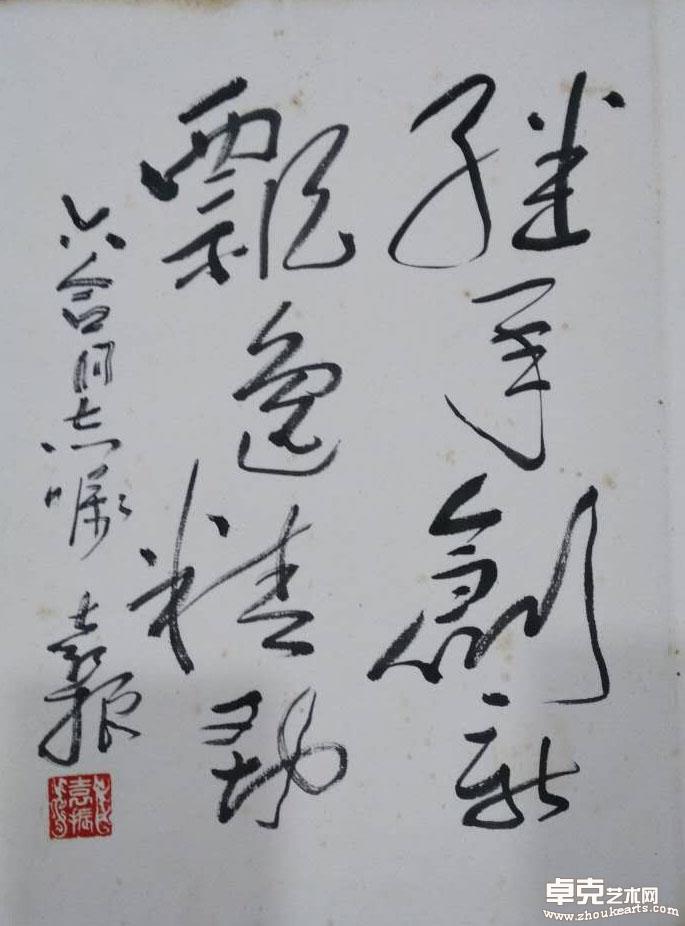 继承創新
飄逸精劲
六合同志嘱 袁振
袁振
卓克艺术网
www.zhoukearts.com